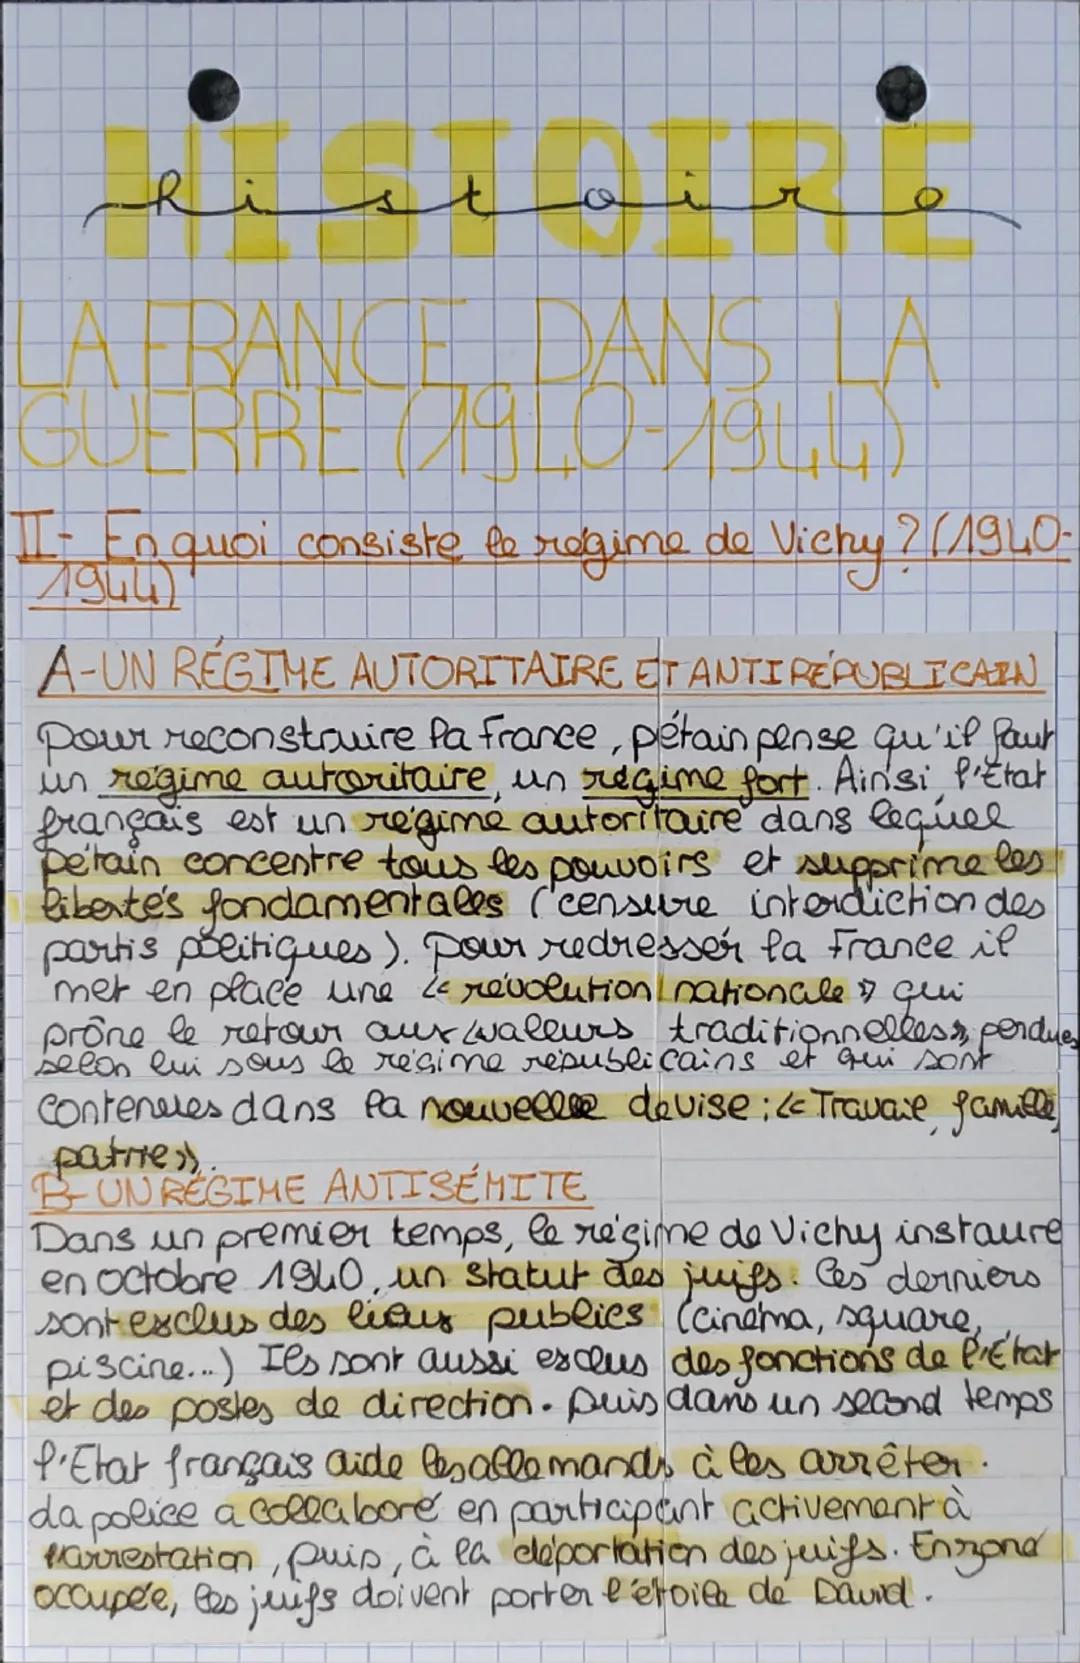 HISTOIRE
histoire
LA FRANCE DANS LA
GUERRE (1940-1944)
II- En quoi consiste le régime de Vichy ? (1940-
1944)
A-UN RÉGIME AUTORITAIRE ET ANTIRÉPUBLICAIN
Pour reconstruire la France, pétain pense qu'il faut
un régime autoritaire, un régime fort. Ainsi l'État
français est un régime autoritaire dans lequel
pétain concentre tous les pouvoirs et supprime les
libertés fondamentales (censure interdiction des
partis politiques). Pour redresser la France il
met en place une « révolution nationale » qui
prône le retour aux « valeurs traditionnelles », perdues
selon lui sous le régime républicains et qui sont
contenues dans la nouvelle devise : « Travail, famille,
patrie ».
B- UN RÉGIME ANTISÉMITE
Dans un premier temps, le régime de Vichy instaure
en octobre 1940, un statut des juifs. Ces derniers
sont exclus des lieux publics (cinéma, square,
piscine...) Ils sont aussi exclus des fonctions de l'État
et des postes de direction. Puis dans un second temps
l'État français aide les allemands à les arrêter.
La police a collaboré en participant activement à
l'arrestation, puis, à la déportation des juifs. En zone
occupée, les juifs doivent porter l'étoile de David.